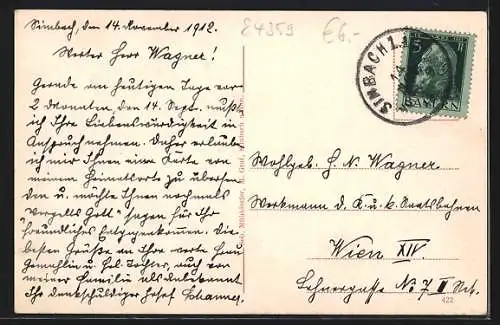 Simbach, den 14. November 1912.
E4359
€6,-
Werter Herr Wagner!
Gerade am heutigen Tage vor
2 Monaten, den 14. Sept. mußt
ich Ihre Liebenswürdigkeit in
Anspruch nehmen. Daher erlaube
ich mir Ihnen eine Karte von
meinem Heimatsorte zu übersen
den u. möchte Ihnen nochmals
"Vergelts Gott" sagen für Ihr
freundliches Entgegenkommen. Die
besten Grüße an Ihre werte Frau
Gemahlin u. Frl. Tochter, auch von
meiner Familie als unbekannt
Ihr dankschuldiger Josef
SIMBACH
5
BAYERN
Wohlgeb. H. N. Wagner
Werkmann d. K. u. k. Staatsbahnen
Wien XIV.
No 7 II
422